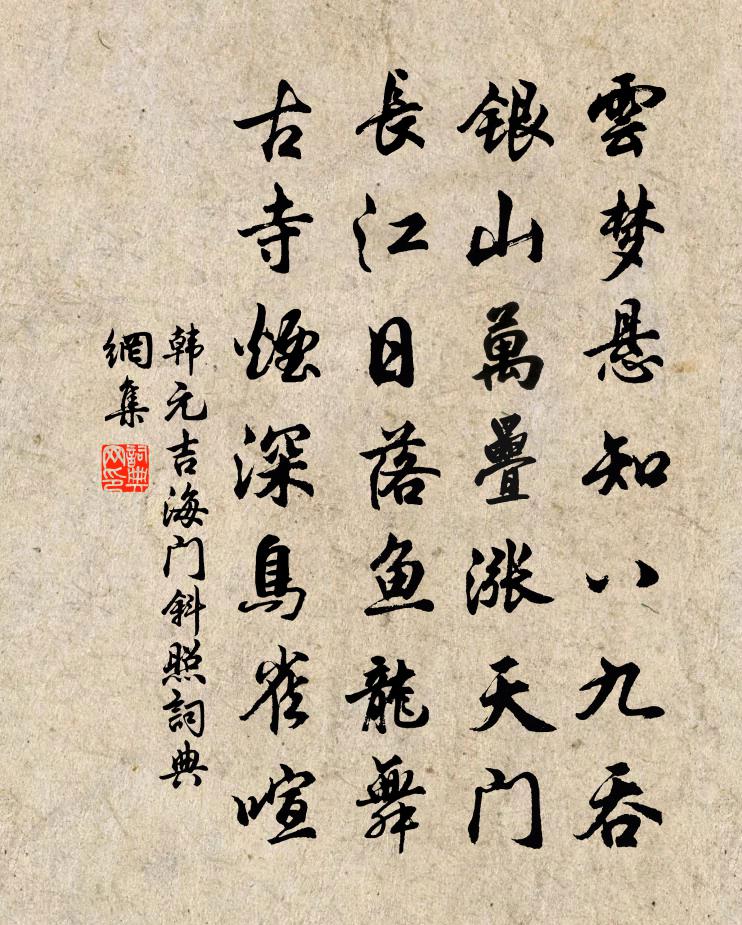 雲梦悬知八九吞
銀山萬疊漲天门
長江日落鱼龍舞
古寺煙深鳥雀喧
韩元吉海门斜照詞典
網集
詞典
网印